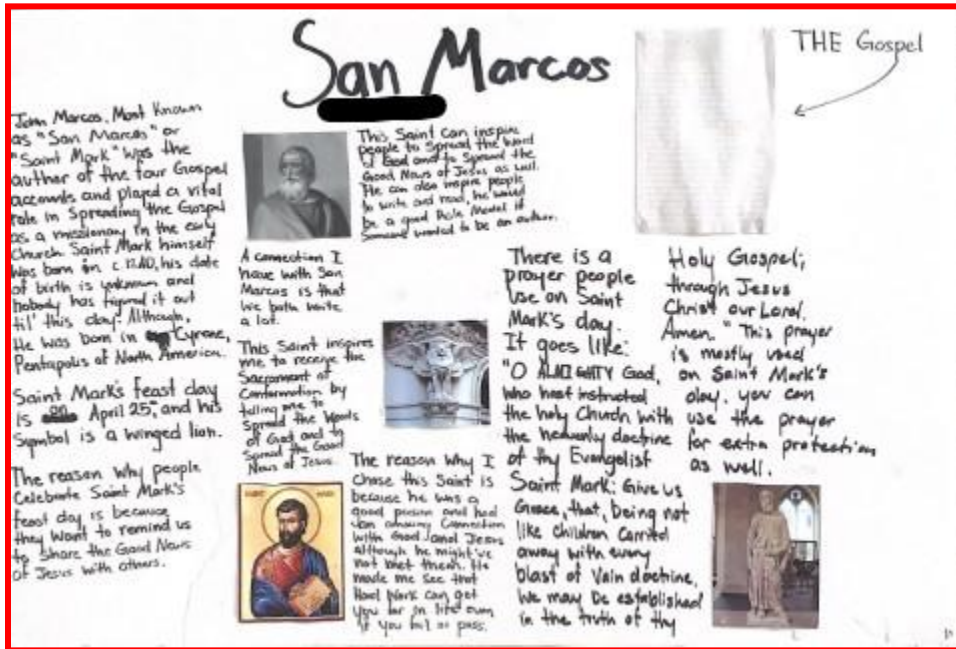 San Marcos
THE Gospel
John Marcos, Most Known
as "San Marcos" or
"Saint Mark" was the
author of the four Gospel
accounts and played a vital
role in Spreading the Gospel
as a missionary in the early
Church. Saint Mark himself
was born in c. 12 AD, his date
of birth is unknown and
nobody has figured it out
til' this day. Although,
He was born in Cyrene,
Pentapolis of North America.
Saint Mark's feast day
is April 25th, and his
Symbol is a winged lion.
The reason why people
Celebrate Saint Mark's
feast day is because
they want to remind us
to share the Good News
of Jesus with others.
This Saint can inspire
people to Spread the word
of God and to Spread the
Good News of Jesus as well.
He can also inspire people
to write and read, he would
be a good Role Model if
Someone wanted to be an author.
A connection I
have with San
Marcos is that
we both write
a lot.
This Saint inspires
me to receive the
Sacrament of
Confirmation by
telling me to
Spread the Words
of God and to
Spread the Good
News of Jesus.
The reason why I
Chose this Saint is
because he was a
good person and had
an amazing Connection
with God and Jesus
although he might've
not met them. He
made me see that
Hard Work can get
you far in life even
if you fail or pass.
There is a
prayer people
use on Saint
Mark's day.
It goes like:
"O ALMIGHTY God,
who hast instructed
the holy Church with
the heavenly doctrine
of thy Evangelist
Saint Mark: Give us
Grace, that, being not
like children Carried
away with every
blast of Vain doctrine,
We may be established
in the truth of thy
Holy Gospel;
through Jesus
Christ our Lord.
Amen." This prayer
is mostly used
on Saint Mark's
day. you can
use the prayer
for extra protection
as well.